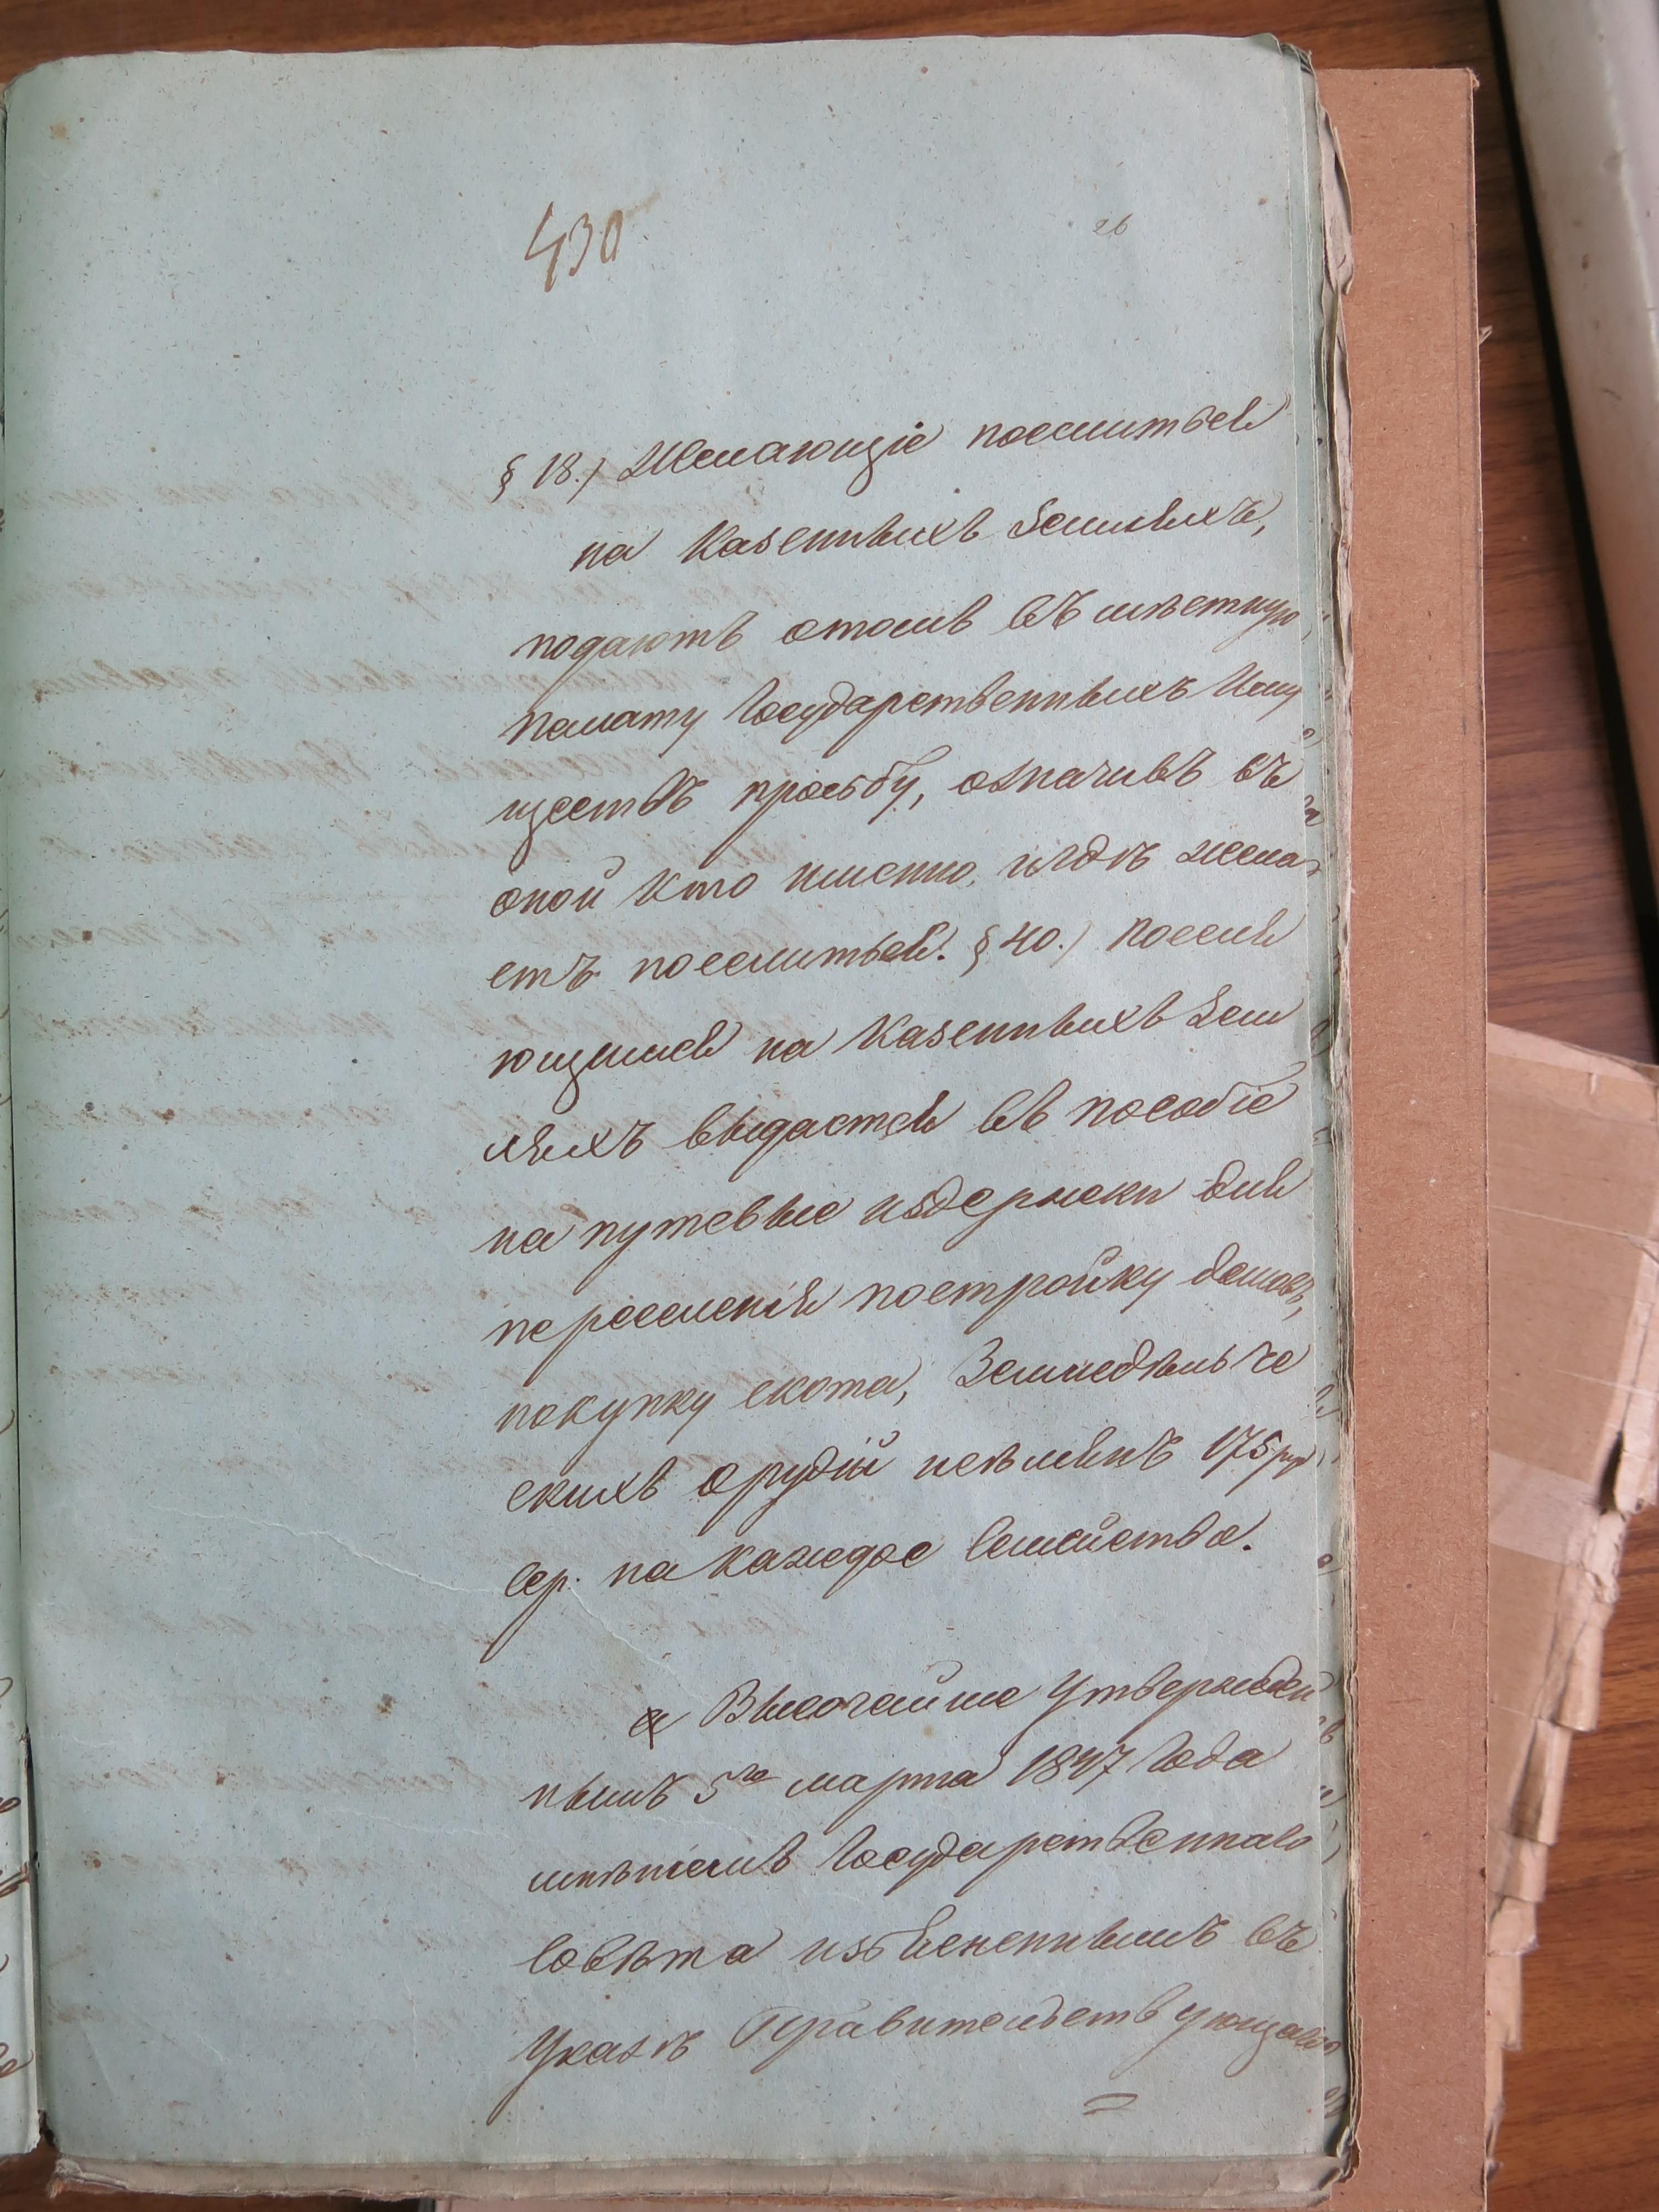 430
26
§ 18.) Желающіе поселиться
на Казенныхъ Земляхъ,
подаютъ отомъ въ мѣстную
палату Государственныхъ Иму
ществъ просьбу, означивъ въ
оной кто именно, игдѣ жела
етъ поселиться. § 40.) Поселя
ющимся на Казенныхъ Зем
ляхъ выдается въ пособіе
на путевые издержки для
переселенія постройку домовъ,
покупку скота, Земледѣльче
скихъ орудій 175 руб
сер. на каждое Семейство.
а Высочайше Утвержден
нымъ 5го марта 1847 Года
мнѣніемъ Государственнаго
Совѣта изъясненнымъ въ
Указѣ Правительствующаго